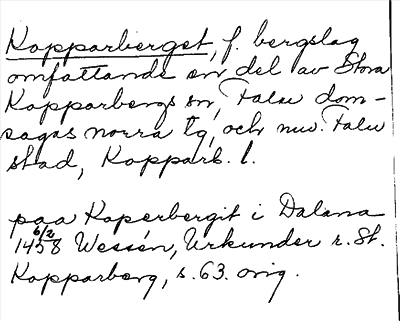 Kopparberget, f. bergslag
omfattande en del av Stora
Kopparbergs sn, Falu dom-
sagas norra tg, och nuv. Falu
stad, Kopparb. l.
paa Koperbergit i Dalana
1458 6/2 Wessén, Urkunder r. St.
Kopparberg, s. 63. orig.